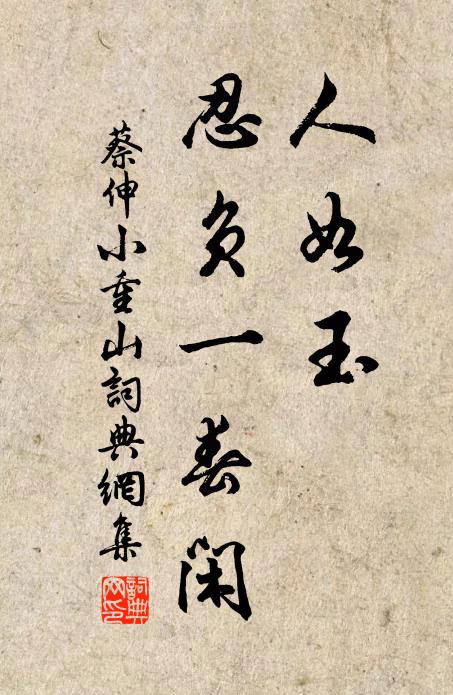 人如玉
忍負一春閑
蔡伸小重山詞典網集
詞典網印